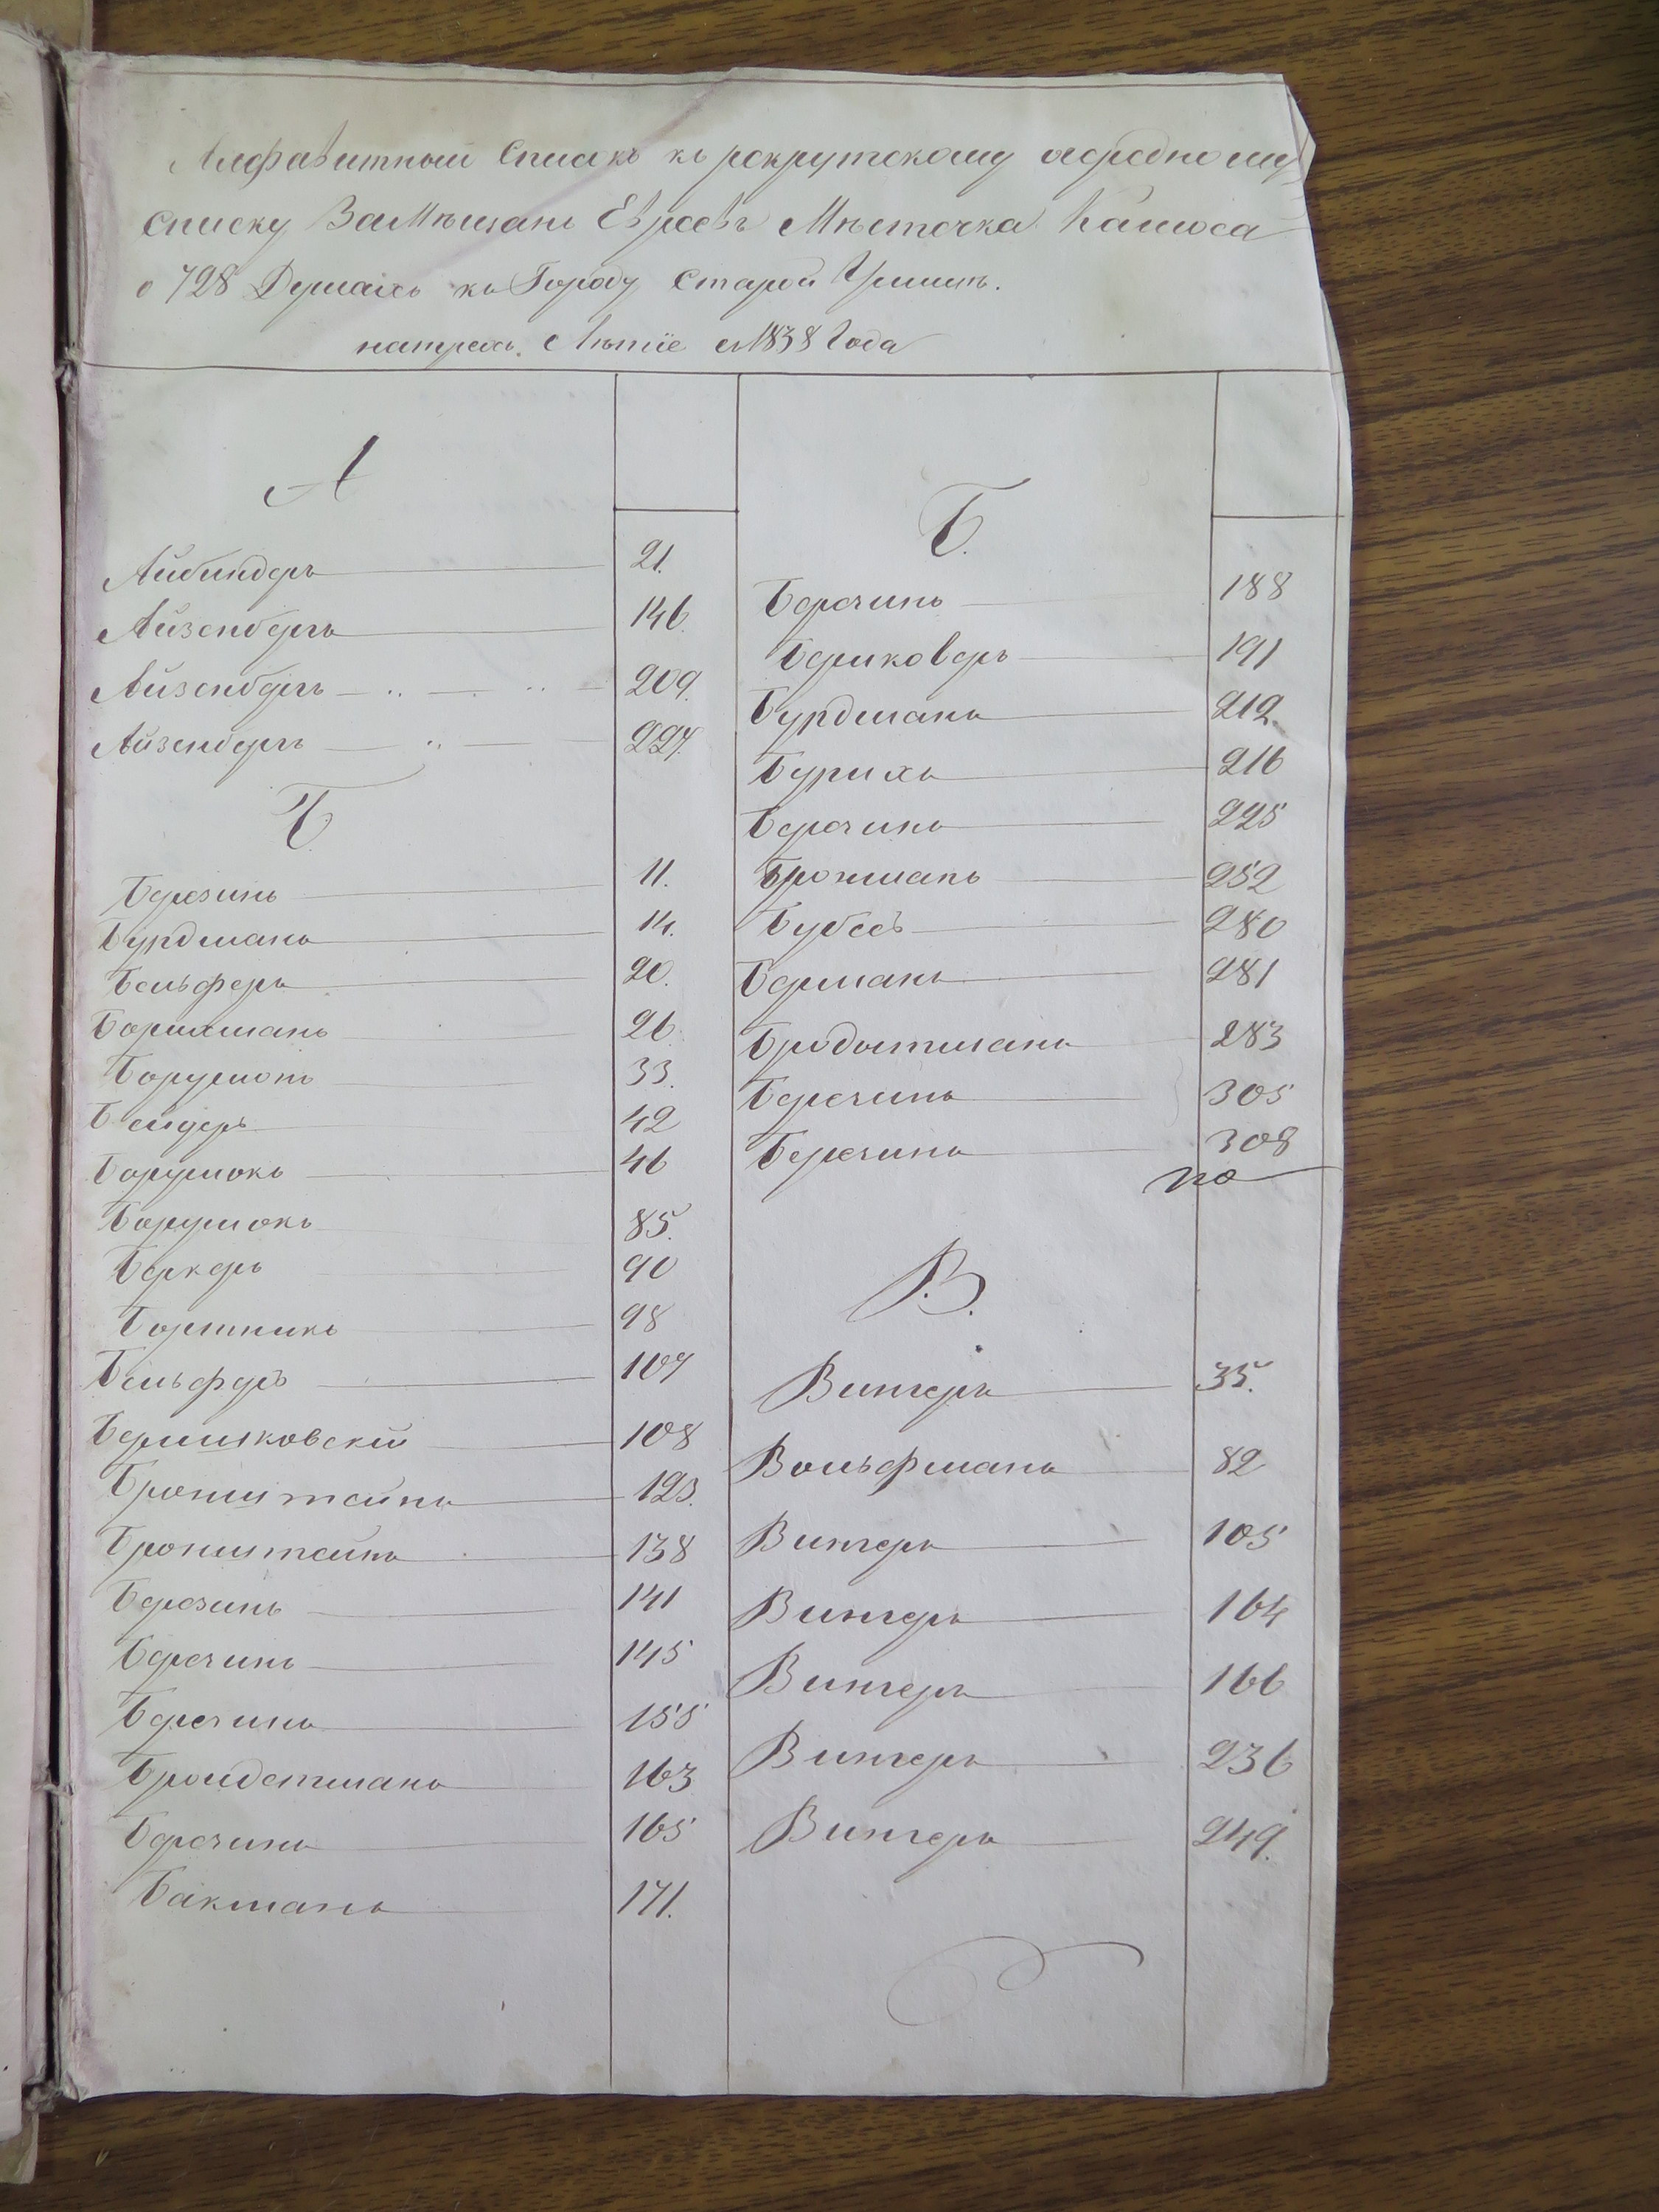 Алфавитный Списокъ къ рекрутскому очередному
списку Замѣщанъ Евреевъ Мѣстечка Калюса
о 728 Душахъ къ Городу Старой Ушицѣ.
натрехъ Лѣтіе съ 1838 Года
А
Айбиндеръ 21.
Айзенбергъ 146.
Айзенбергъ 209.
Айзенбергъ 227.
Б.
Березинъ 11.
Бурдманъ 14.
Бельферъ 20.
Борихманъ 26.
Борушокъ 33.
Бейдеръ 42
Борушокъ 46
Борушокъ 85.
Беркеръ 90
Бортникъ 98
Бельферъ 107
Бершиковскій 108
Бронштейнъ 123.
Бронштейнъ 138
Березинъ 141
Беречинъ 145
Беречинъ 155
Бройдетманъ 163
Беречинъ 165
Бакманъ 171.
Б.
Беречинъ 188
Бериковеръ 191
Бурдманъ 212.
Бурихъ 216
Беречинъ 225
Брохманъ 252
Бубесъ 280
Берманъ 281
Бродотманъ 283
Беречинъ 305
Беречинъ 308
В.
Вингеръ 35.
Вольфманъ 82
Вингеръ 105
Вингеръ 164
Вингеръ 166
Вингеръ 236
Вингеръ 249.